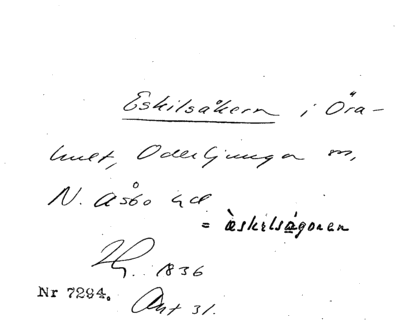 Eskilsåkern i Öra-
hult, Oderljunga sn,
N. Åsbo hd
= èskilságoren
1836
Nr 7294. Ant 31.